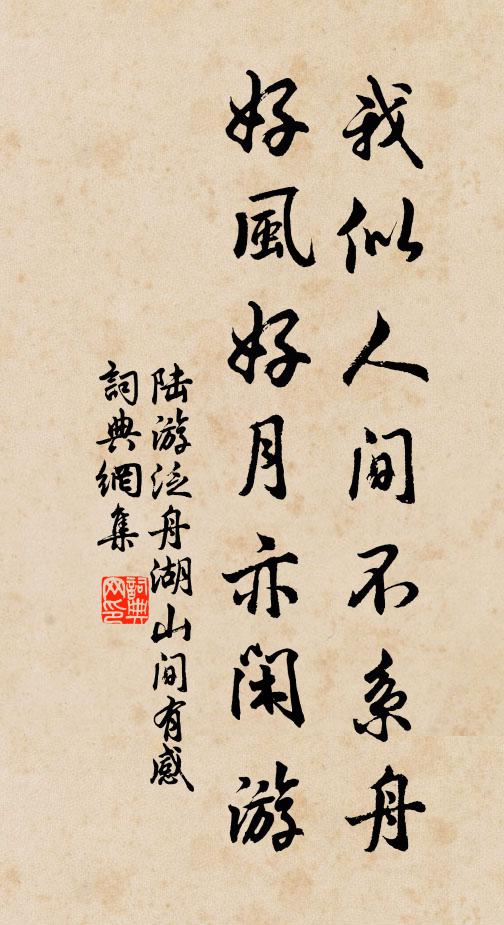 我似人间不系舟
好風好月亦閑游
陆游泛舟湖山间有感
詞典網集
詞典网印